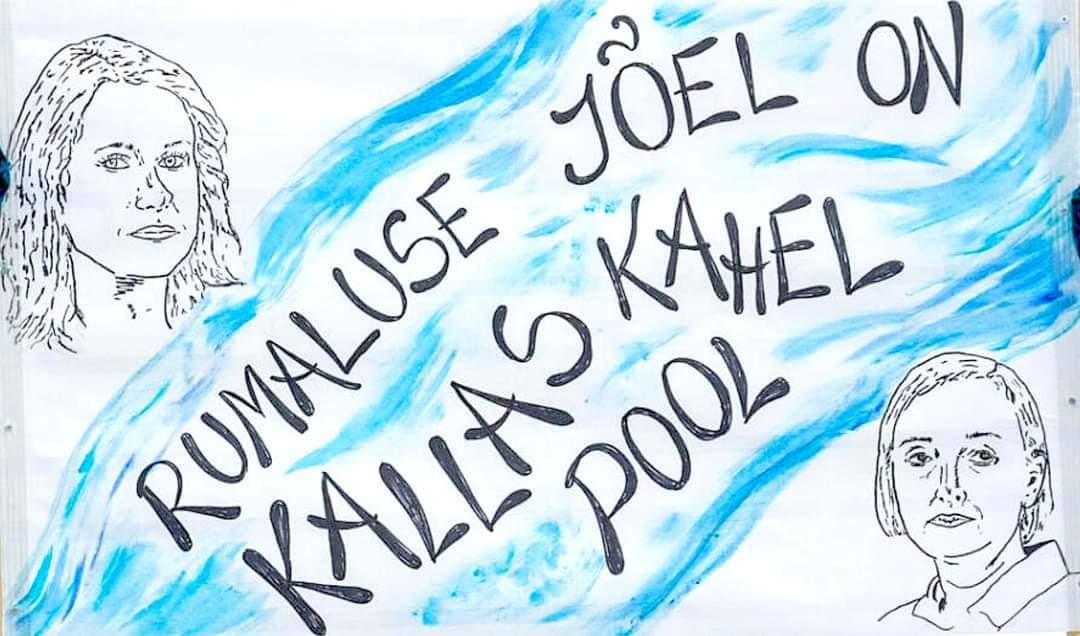 RUMALUSE
KALLAS
JÕEL ON
KAHEL
POOL